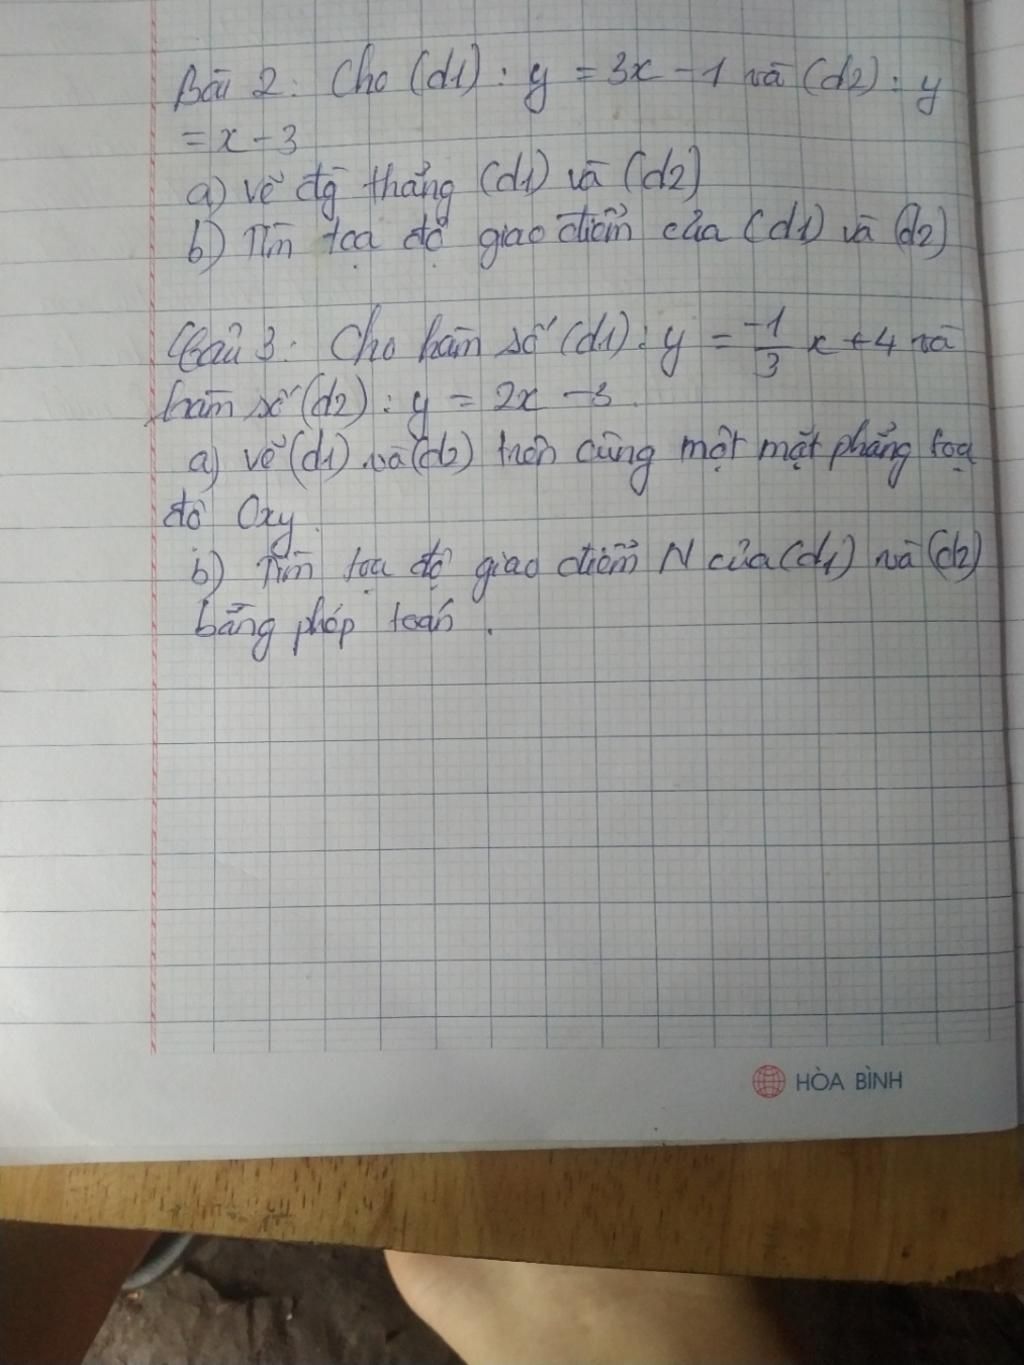 Bài 2: Cho (d1): y = 3x - 1 và (d2): y
= x - 3
a) vẽ đg thẳng (d1) và (d2)
b) Tìm tọa độ giao điểm của (d1) và (d2)
Câu 3: Cho hàm số (d1): y = \frac{-1}{3} x + 4 và
hàm số (d2): y = 2x - 3.
a) vẽ (d1) và (d2) trên cùng một mặt phẳng tọa
độ Oxy.
b) Tìm tọa độ giao điểm N của (d1) và (d2)
bằng phép toán.
HÒA BÌNH